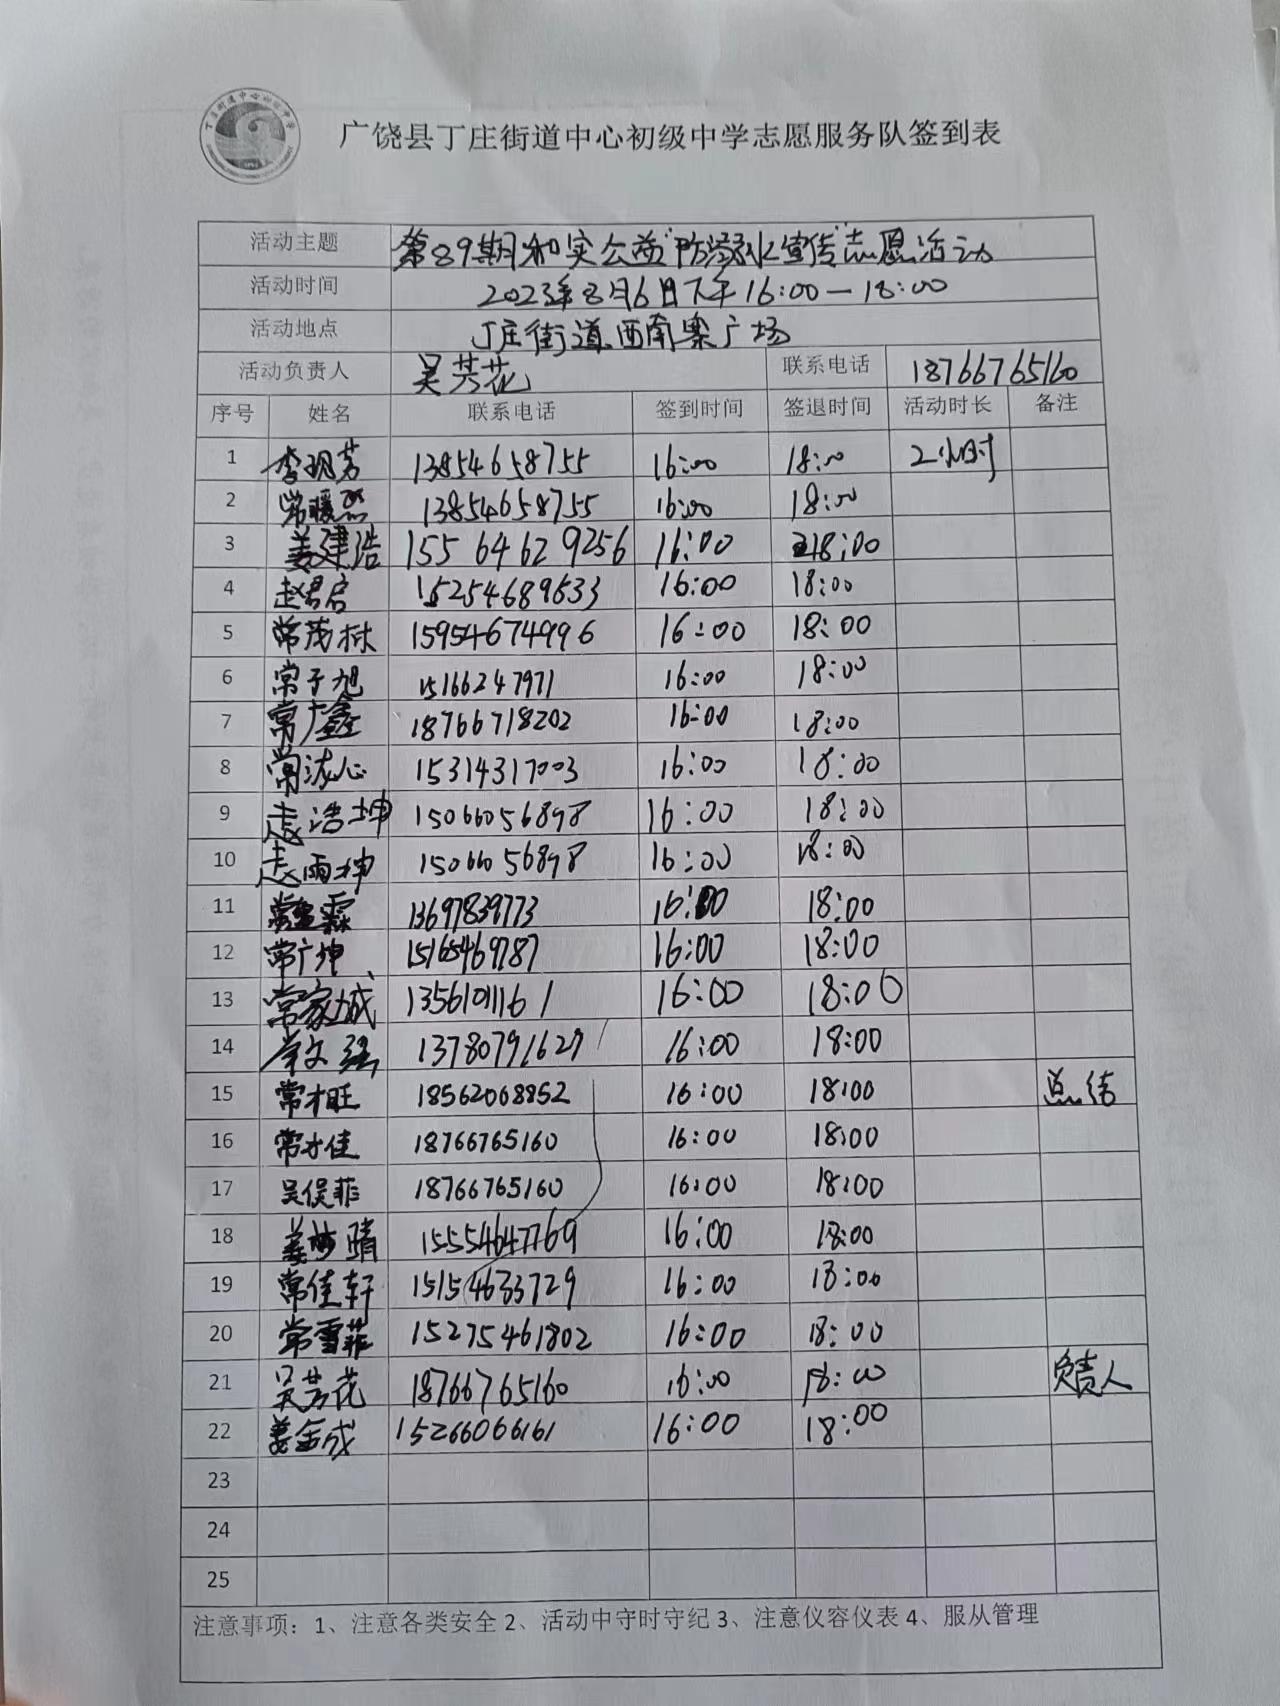 丁庄街道中心初级中学
广饶县丁庄街道中心初级中学志愿服务队签到表
活动主题 第89期和实公益"防溺水宣传"志愿活动
活动时间 2023年8月6日下午16:00—18:00
活动地点 丁庄街道西南寨广场
活动负责人 吴芳花 联系电话 18766765160
序号 姓名 联系电话 签到时间 签退时间 活动时长 备注
1 李观芳 13854658755 16:00 18:00 2小时
2 常暖然 13854658755 16:00 18:00
3 姜建浩 15564629256 16:00 18:00
4 赵君启 15254689533 16:00 18:00
5 常茂林 15954674996 16:00 18:00
6 常于旭 15166247971 16:00 18:00
7 常广鑫 18766718202 16:00 18:00
8 常沭心 15314317003 16:00 18:00
9 赵浩坤 15066056898 16:00 18:00
10 赵雨坤 15066056898 16:00 18:00
11 常霖 13697839773 16:00 18:00
12 常广坤 15165469787 16:00 18:00
13 常家城 13561011161 16:00 18:00
14 常文强 13780791627 16:00 18:00
15 常才旺 18562068852 16:00 18:00 总结
16 常才佳 18766765160 16:00 18:00
17 吴俣菲 18766765160 16:00 18:00
18 姜梦晴 15554647769 16:00 18:00
19 常佳轩 15154633729 16:00 18:00
20 常雪菲 15275461802 16:00 18:00
21 吴芳花 18766765160 16:00 18:00 负责人
22 姜金成 15266066161 16:00 18:00
23
24
25
注意事项：1、注意各类安全 2、活动中守时守纪 3、注意仪容仪表 4、服从管理